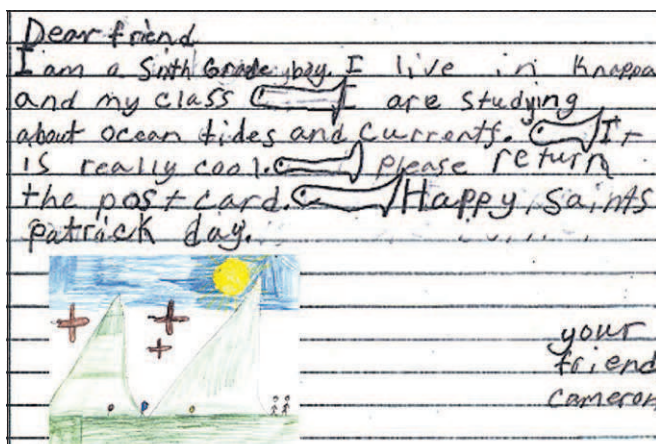 Dear friend
I am a Sinth Grade boy. I live in Knappa
and my class I are studying
about ocean tides and currents. It
is really cool. please return
the post card. Happy Saints
patrick day.
your
friend
cameron